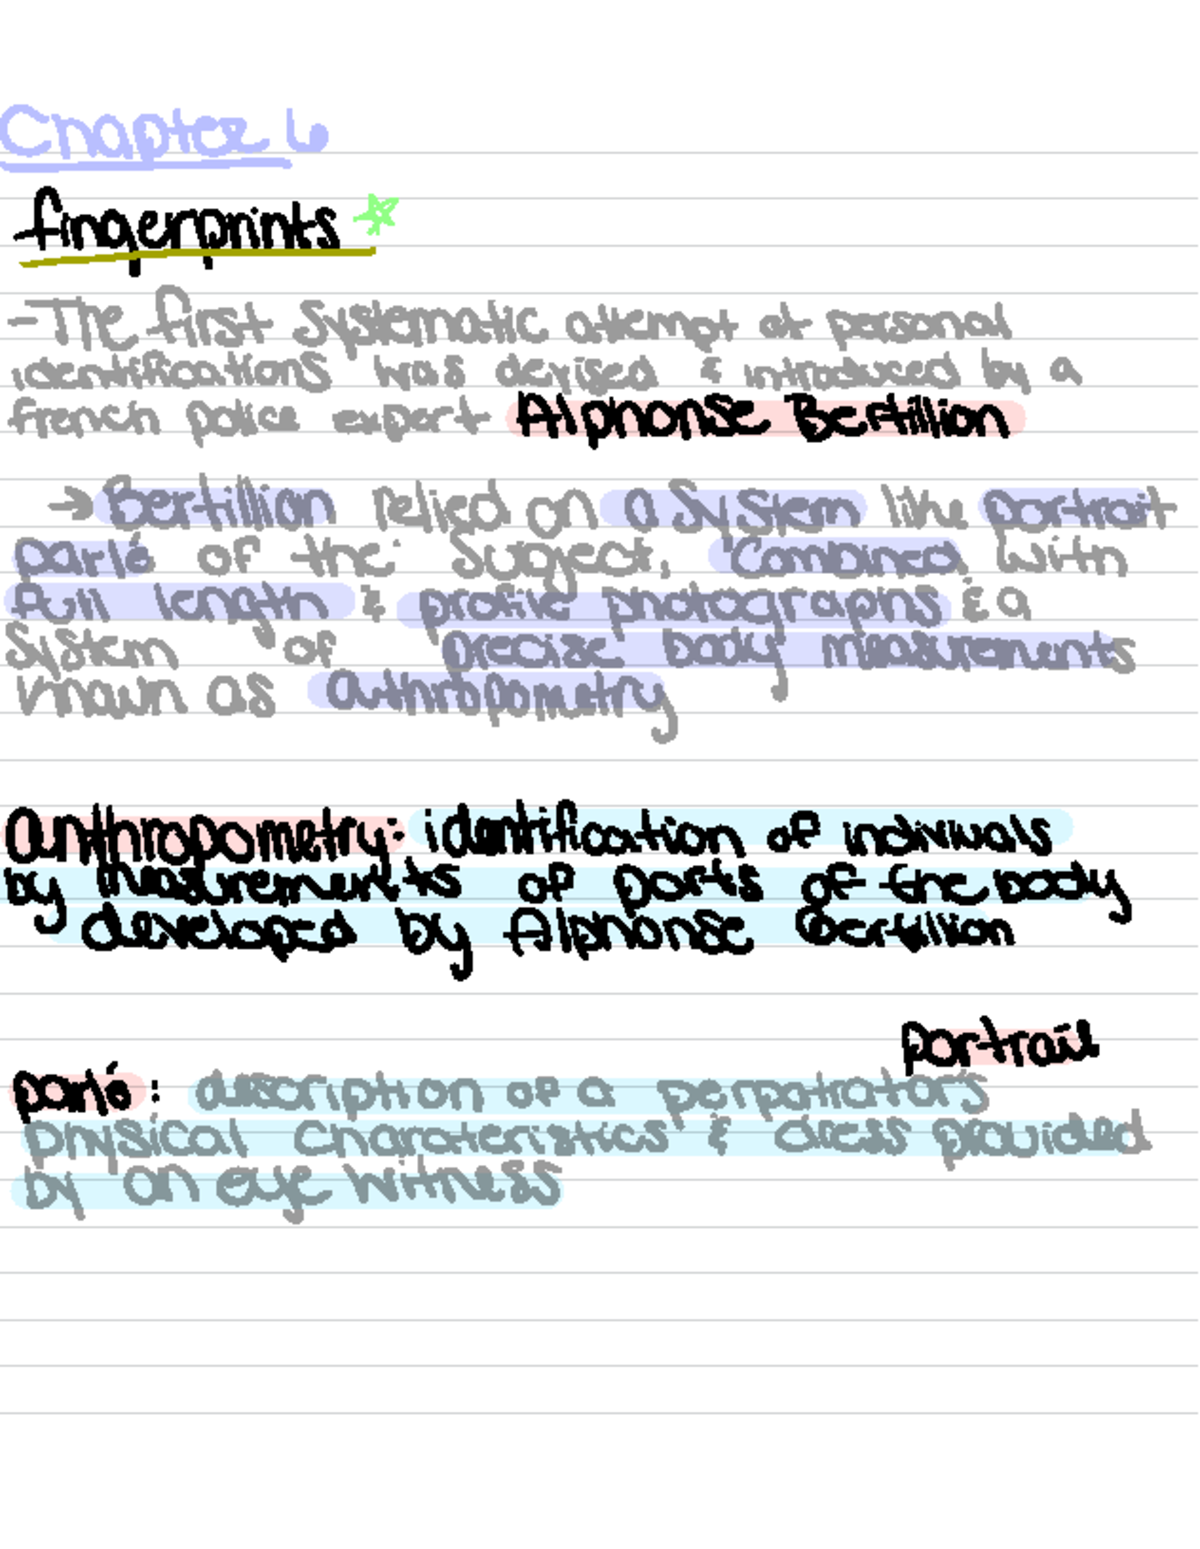 Chapter 6
fingerprints
-The first systematic attempt at personal
identifications was devised & introduced by a
french police expert Alphonse Bertillion
→ Bertillian relied on a system like portrait
parlé of the suject. Combined with
full length & profile photographs & a
system of precise body measurements
known as anthropometry
anthropometry: identification of indiviuals
by measurements of parts of the body
developed by Alphonse Bertillion
portrait
parlé: description of a perpatrators
physical charateristics & dress provided
by an eye witness